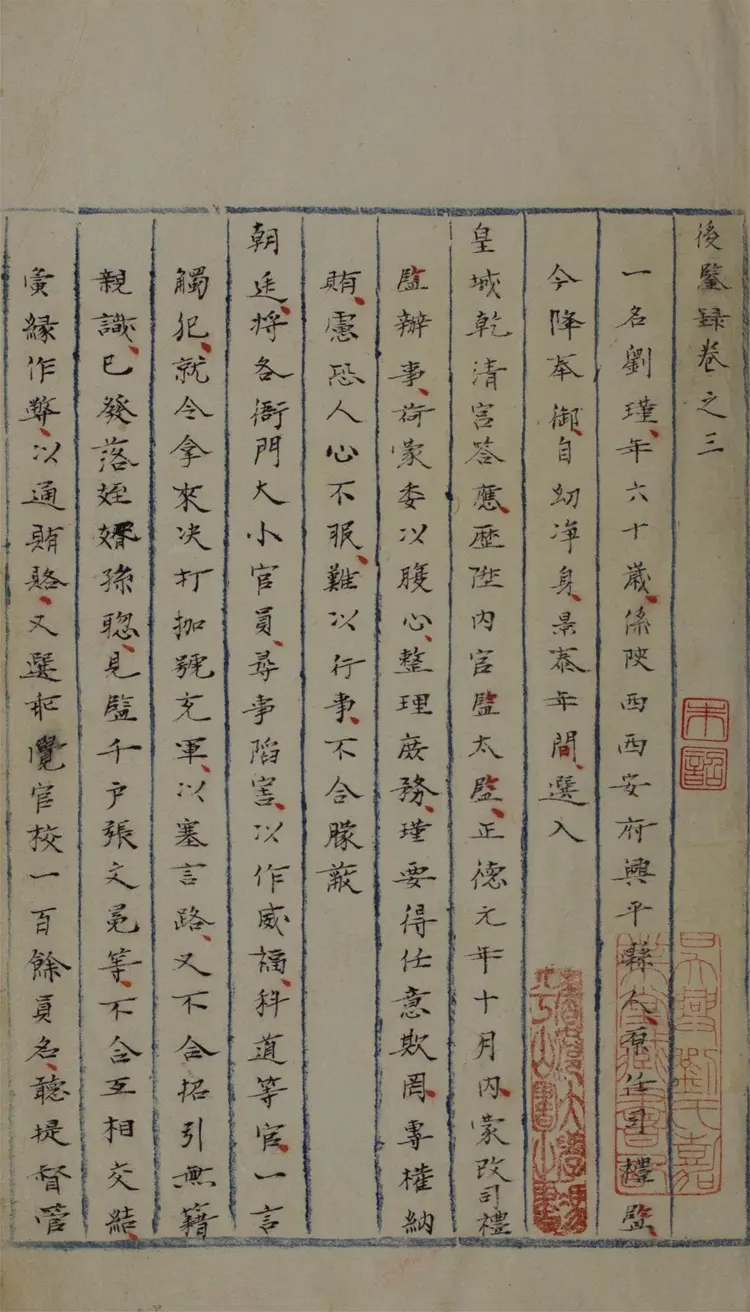 後鑒録卷之三
一名劉瑾年六十歲係陝西西安府興平縣人原任司禮監
今降奉御自幼凈身景泰年間選入
皇城乾清宮答應歷陞內官監太監正德元年十月內蒙改司禮
監辦事荷蒙委以腹心整理庶務瑾要得任意欺罔專權納
賄慮恐人心不服難以行事不合朦蔽
朝廷將各衙門大小官員尋事陷害以作威福科道等官一言
觸犯就令拿來決打枷號充軍以塞言路又不合招引無籍
親識已發落姪婿孫聰見監千戶張文冕等不合互相交結
夤緣作弊以通賄賂又選取官校一百餘員名聽提督管
朱